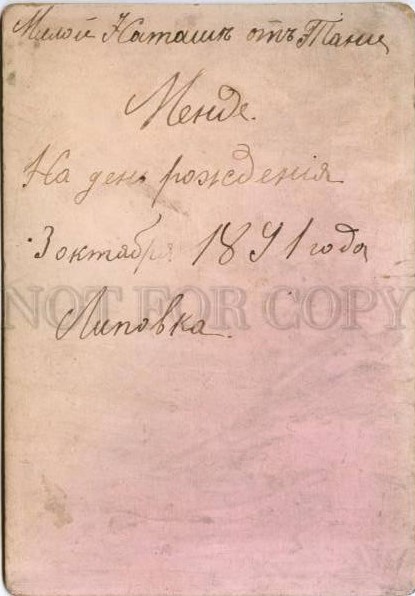 Милой Наташѣ отъ Тани
Менде.
На день рожденія
3 октября 1891 года
NOT FOR COPY
Липовка.